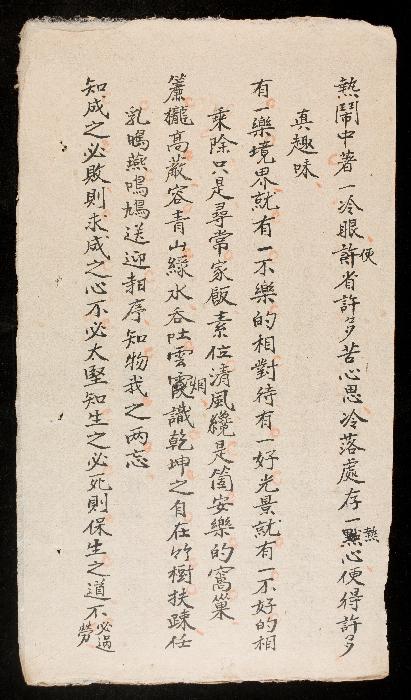 熱鬧中著一冷眼許便省許多苦心思冷落處存一熱點心便得許多
真趣味
有一樂境界就有一不樂的相對待有一好光景就有一不好的相
乘除只是尋常家飯素位清風纔是箇安樂的窩巢
簾櫳高敞容青山綠水吞吐雲霞烟識乾坤之自在竹樹扶疎任
乳鳴燕鳴鳩送迎時序知物我之兩忘
知成之必敗則求成之心不必太堅知生之必死則保生之道不必過勞